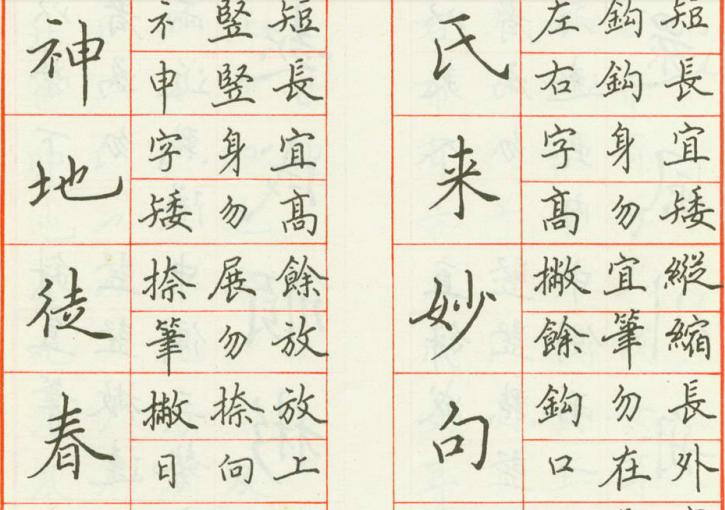 短長宜矮縱縮長外
鈎鈎身勿宜筆勿在
左右字髙撇餘鈎口
氏来妙句
短長宜髙餘放放上
竪竪身勿展勿捺向
礻申字矮捺筆撇日
神地徒春